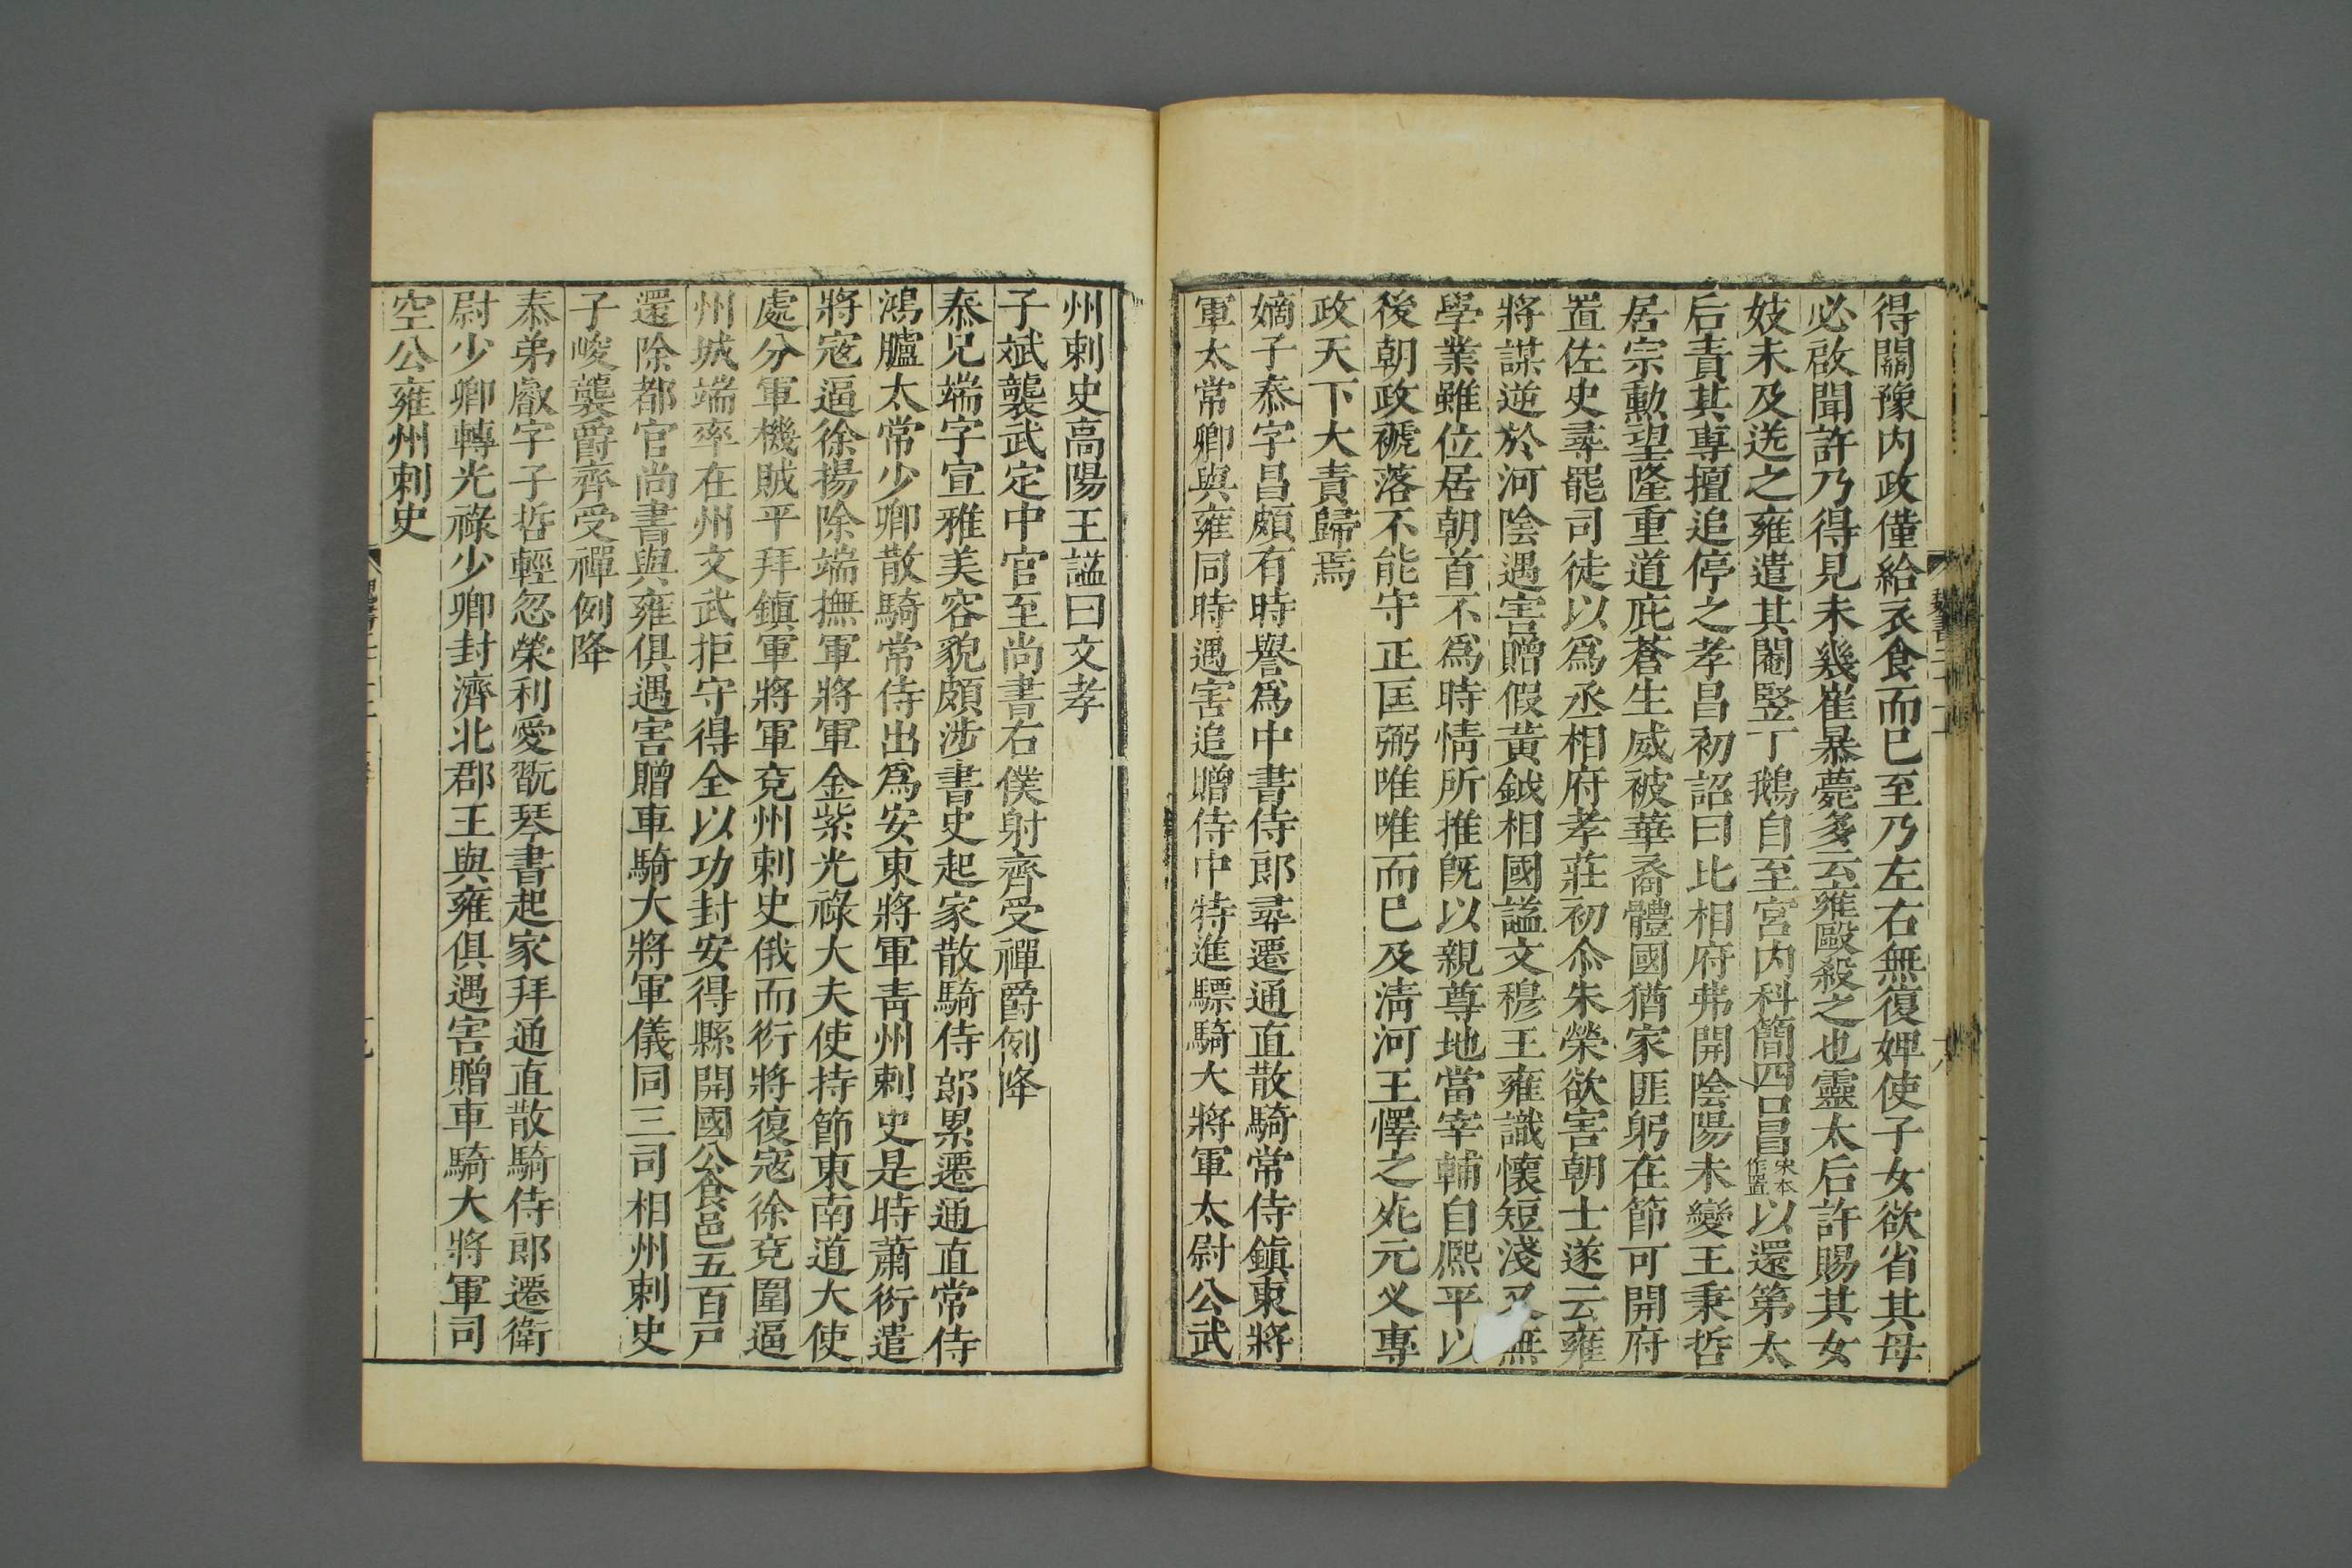 得關豫内政僅給衣食而已至乃左右無復婢使子女欲省其母
必啟聞許乃得見未幾崔暴薨多云雍毆殺之也靈太后許賜其女
妓未及送之雍遣其閹竪丁鵝自至宮内科簡四口冒宋本作置以還第太
后責其專擅追停之孝昌初詔曰比相府弗開陰陽未變王秉哲
居宗勳望隆重道庇蒼生威被華裔體國猶家匪躬在節可開府
置佐史尋罷司徒以爲丞相府孝莊初尒朱榮欲害朝士遂云雍
將謀逆於河陰遇害贈假黃鉞相國諡文穆王雍識懷短淺又無
學業雖位居朝首不爲時情所推旣以親尊地當宰輔自熈平以
後朝政褫落不能守正匡弼唯唯而已及淸河王懌之死元义專
政天下大責歸焉
嫡子泰字昌頗有時譽爲中書侍郎尋遷通直散騎常侍鎮東將
軍太常卿與雍同時遇害追贈侍中特進驃騎大將軍太尉公武
州刺史高陽王諡曰文孝
子斌襲武定中官至尚書右僕射齊受禪爵例降
泰兄端字宣雅美容貌頗涉書史起家散騎侍郎累遷通直常侍
鴻臚太常少卿散騎常侍出爲安東將軍靑州刺史是時蕭衍遣
將寇逼徐揚除端撫軍將軍金紫光祿大夫使持節東南道大使
處分軍機賊平拜鎮軍將軍兗州刺史俄而衍將復寇徐兗圍逼
州城端率在州文武拒守得全以功封安得縣開國公食邑五百戸
還除都官尚書與雍俱遇害贈車騎大將軍儀同三司相州刺史
子峻襲爵齊受禪例降
泰弟叡字子哲輕忽榮利愛翫琴書起家拜通直散騎侍郎遷衛
尉少卿轉光祿少卿封濟北郡王與雍俱遇害贈車騎大將軍司
空公雍州刺史